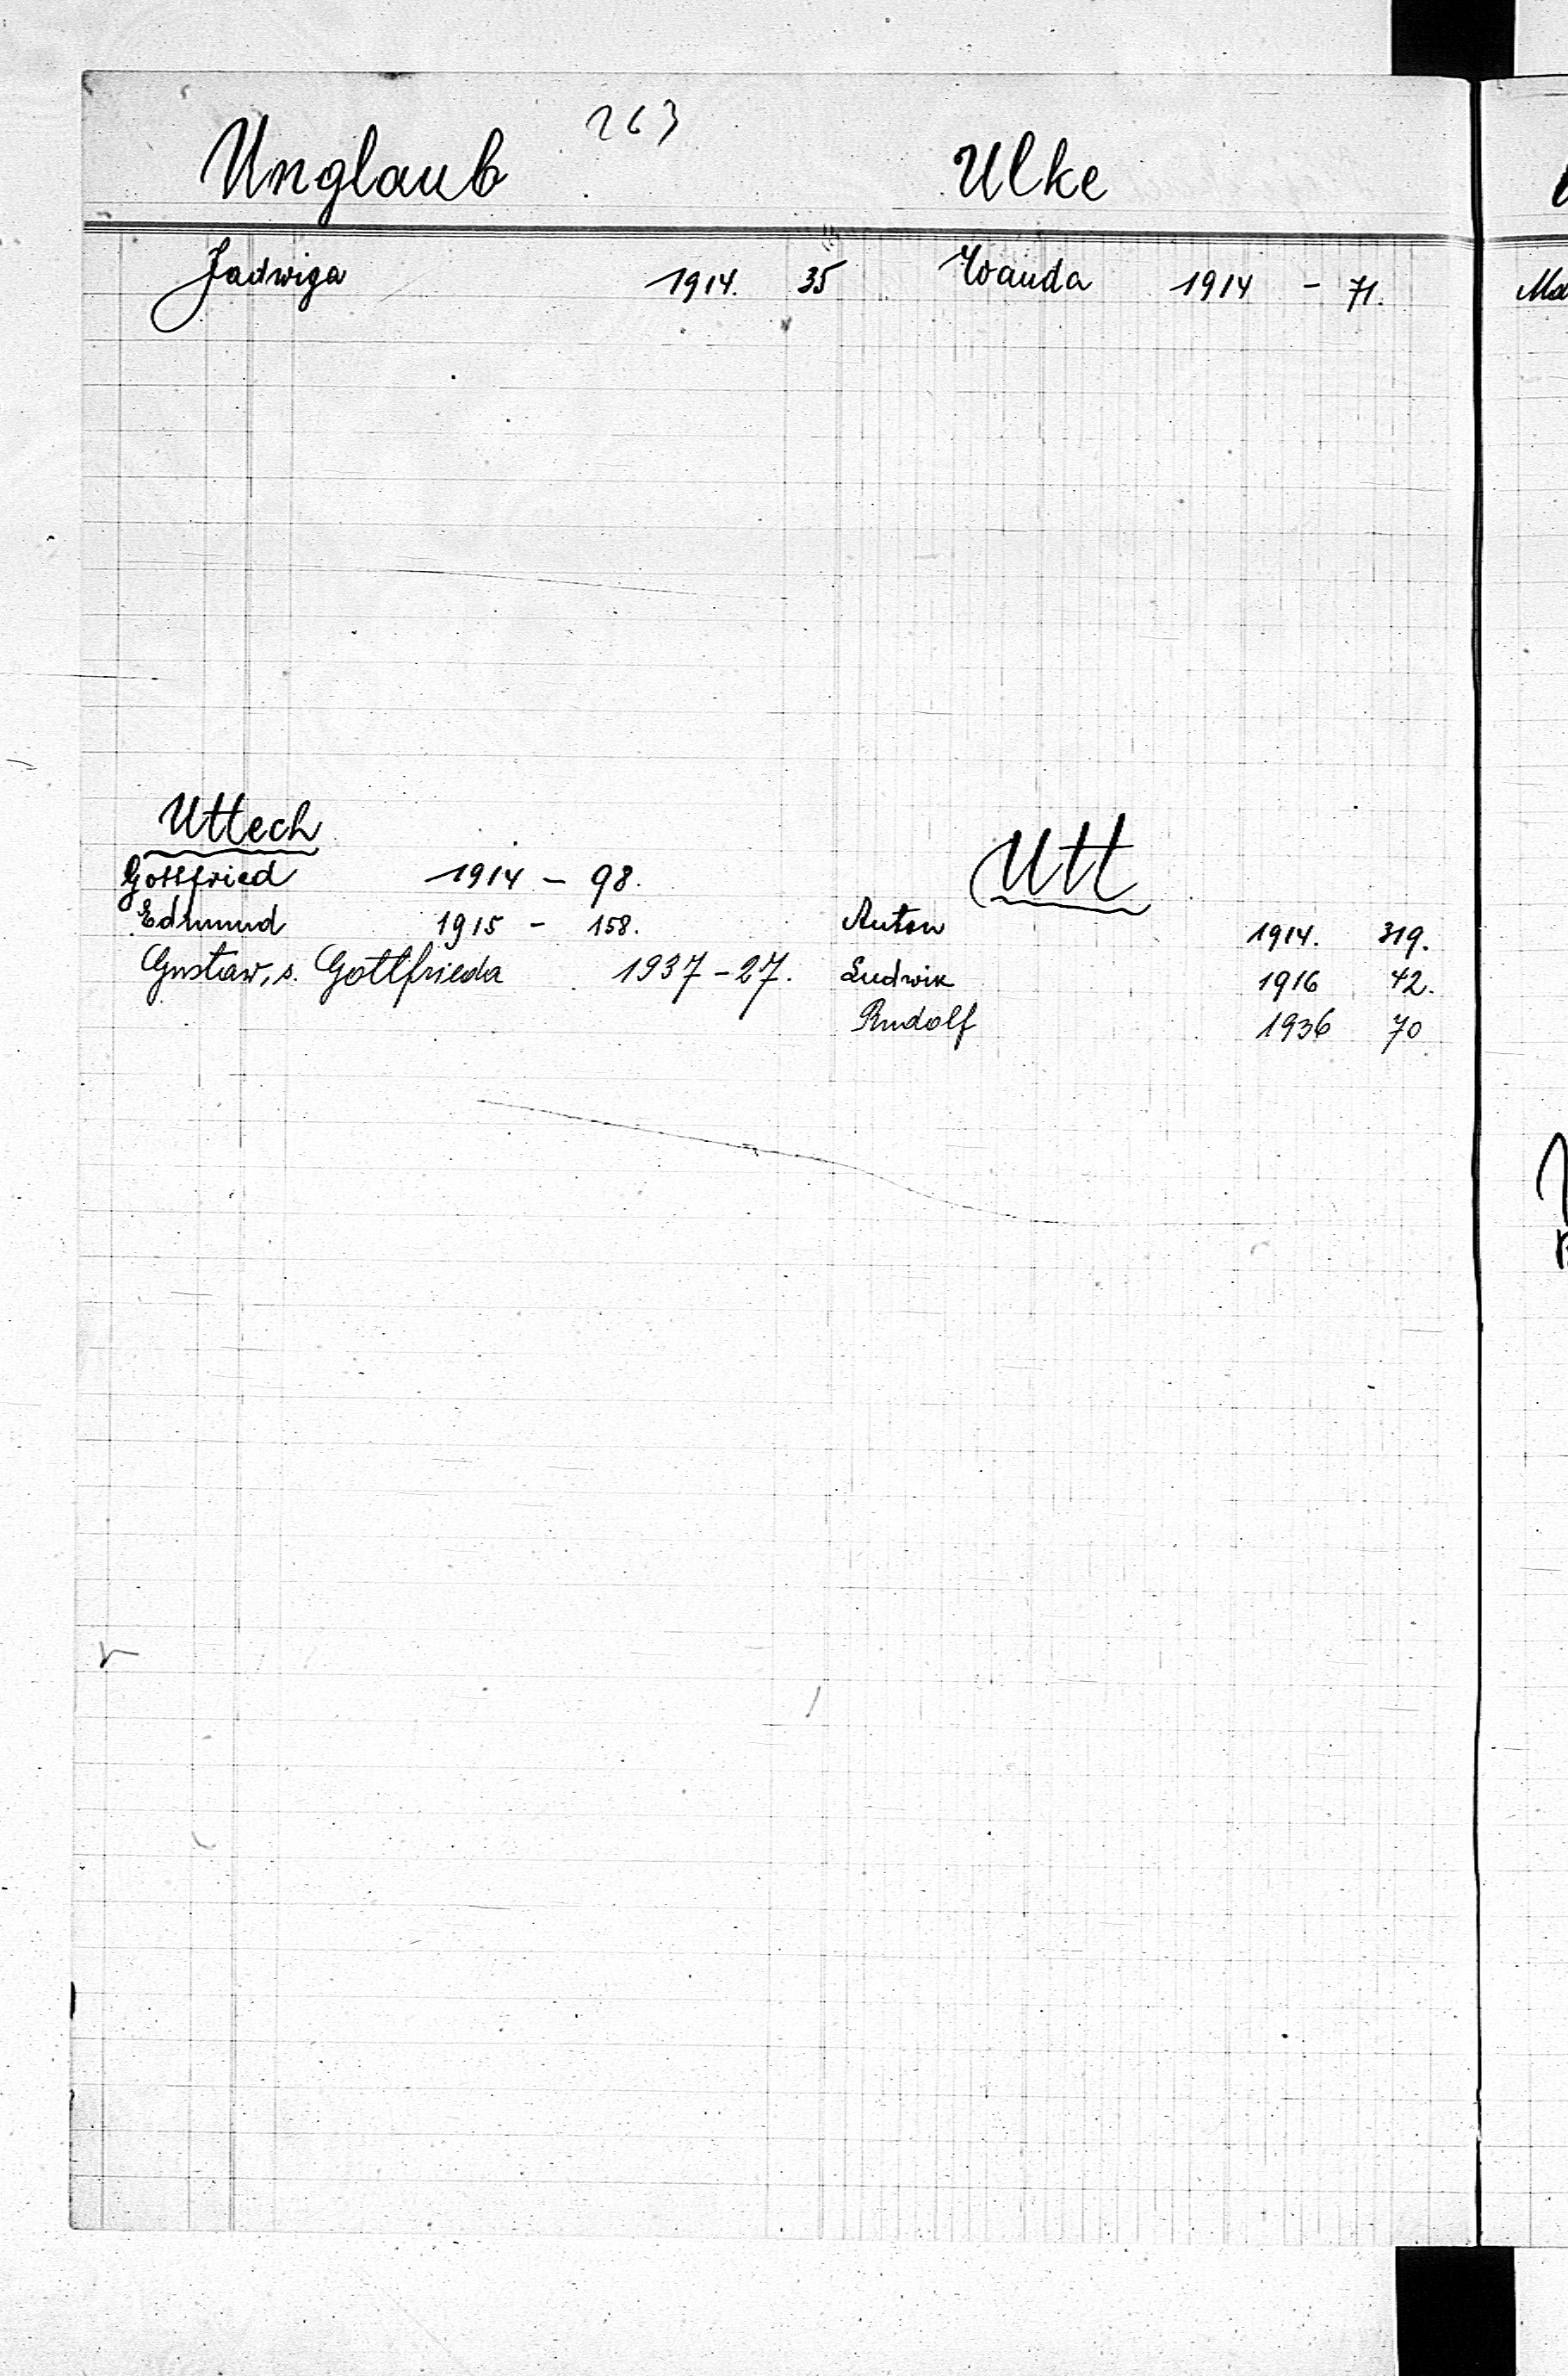 263
Unglaub
Jadwiga 1914. 35
Ulke
Wanda 1914 - 71.
Uttech
Gottfried 1914 - 98.
Edmund 1915 - 158.
Gustaw, s. Gottfrieda 1937 - 27.
Utt
Anton 1914. 319.
Ludwik 1916 42.
Rudolf 1936 70
Ma